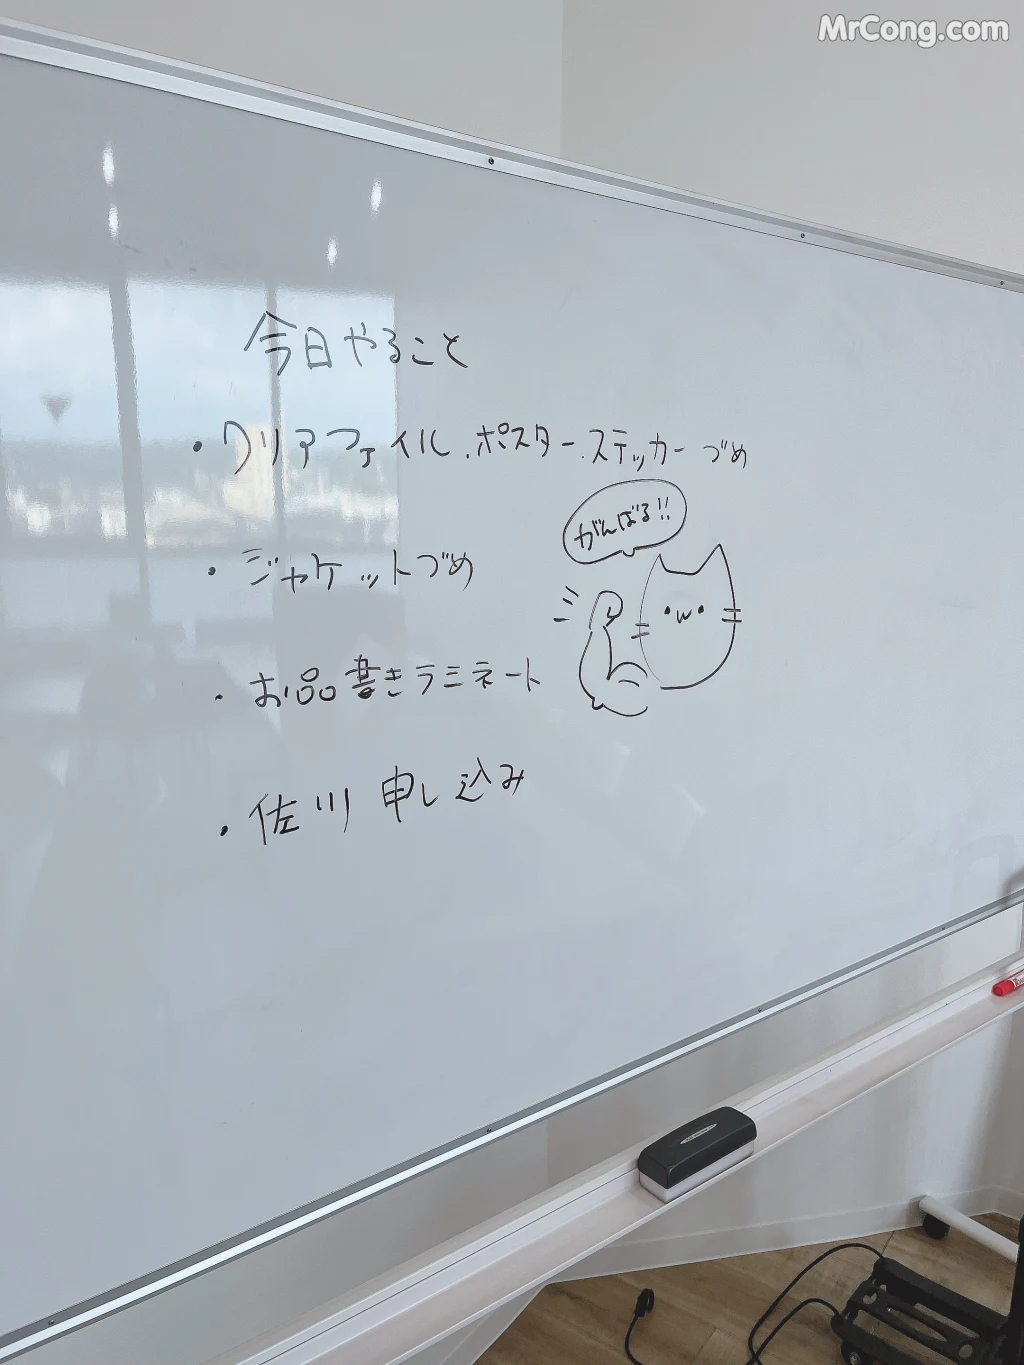 MrCong.com
今日やること
・クリアファイル、ポスター、ステッカーづめ
がんばる!!
・ジャケットづめ
・お品書きラミネート
・佐川 申し込み